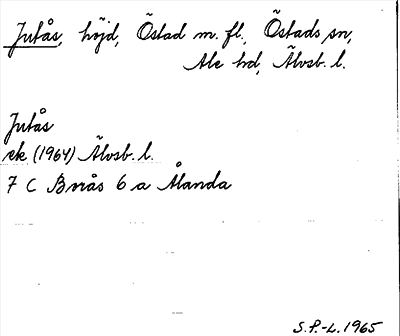 Jutås, höjd, Östad m. fl., Östads sn,
Ale hd, Älvsb. l.
Jutås
ek (1964) Älvsb. l.
7 C Borås 6 a Ålanda
S.P.-L. 1965